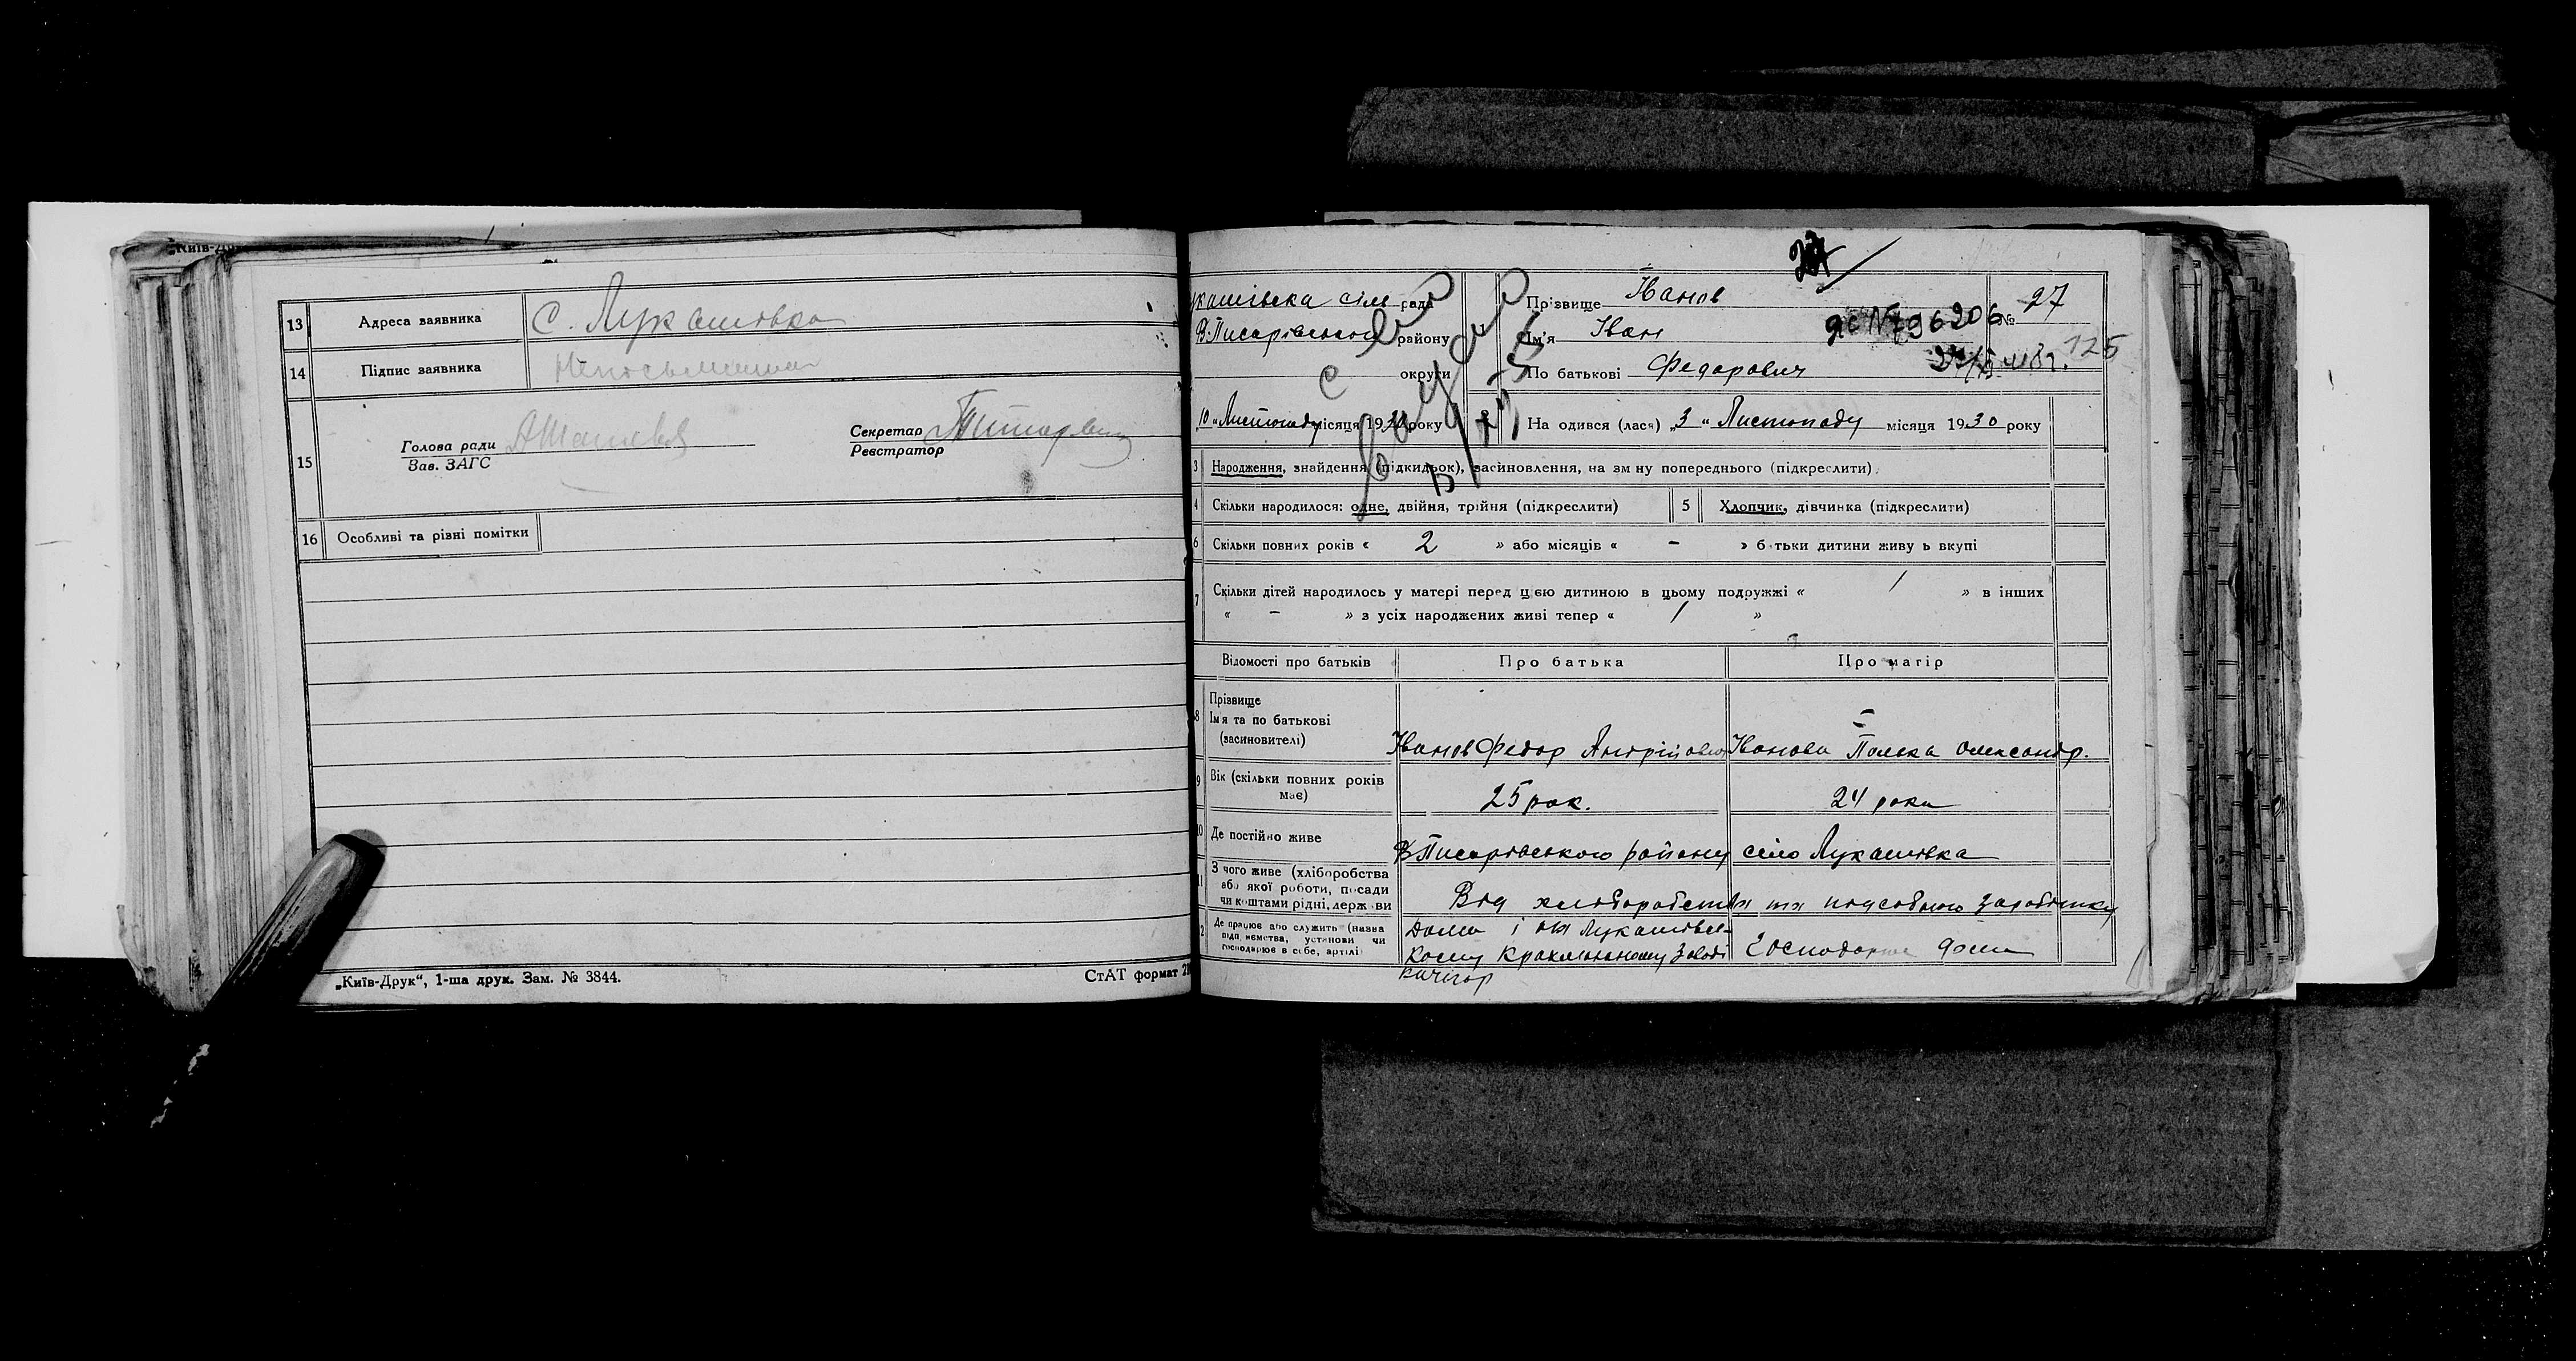 „Київ-Др
13 Адреса заявника С. Лукашовка
14 Підпис заявника
15 Голова ради
Зав. ЗАГС
Секретар
Реєстратор
16 Особливі та різні помітки
„Київ-Друк“, 1-ша друк. Зам. № 3844.
СтАТ формат
27
кашівска сіль рада
В-Писарівського району
округи
10 „Листопаду місяця 1930 року
Прізвище Іванов
Ім'я Іван
По батькові Федорович
№ 27
796206
125
2 На одився (лася) „3“ Листопаду місяця 1930 року
3 Народження, знайдення (підкидьок), засиновлення, на зм ну попереднього (підкреслити)
4 Скільки народилося: одне, двійня, трійня (підкреслити)
5 Хлопчик, дівчинка (підкреслити)
6 Скільки повних років « 2 » або місяців « - » б тьки дитини живу ь вкупі
7 Скільки дітей народилось у матері перед цією дитиною в цьому подружжі « 1 » в інших
« - » з усіх народжених живі тепер « 1 »
Відомості про батьків Про батька Про матір
8 Прізвище
Імя та по батькові
(засиновителі)
Іванов Федор Андрійович Іванова Палька Олександр.
9 Вік (скільки повних років
має)
25 рок. 24 роки
10 Де постійно живе
В Писарівського району село Лукашовка
11 З чого живе (хліборобства
або якої роботи, посади
чи коштами рідні, держ ви
Від хліборобства та підсобного заробітку
12 Де працює або служить (назва
підп иємства, установи чи
господарює в себе, артілі)
Дома і на Лукашовсь-
кому Крахмальному Заводі
Господарює дома
качегар